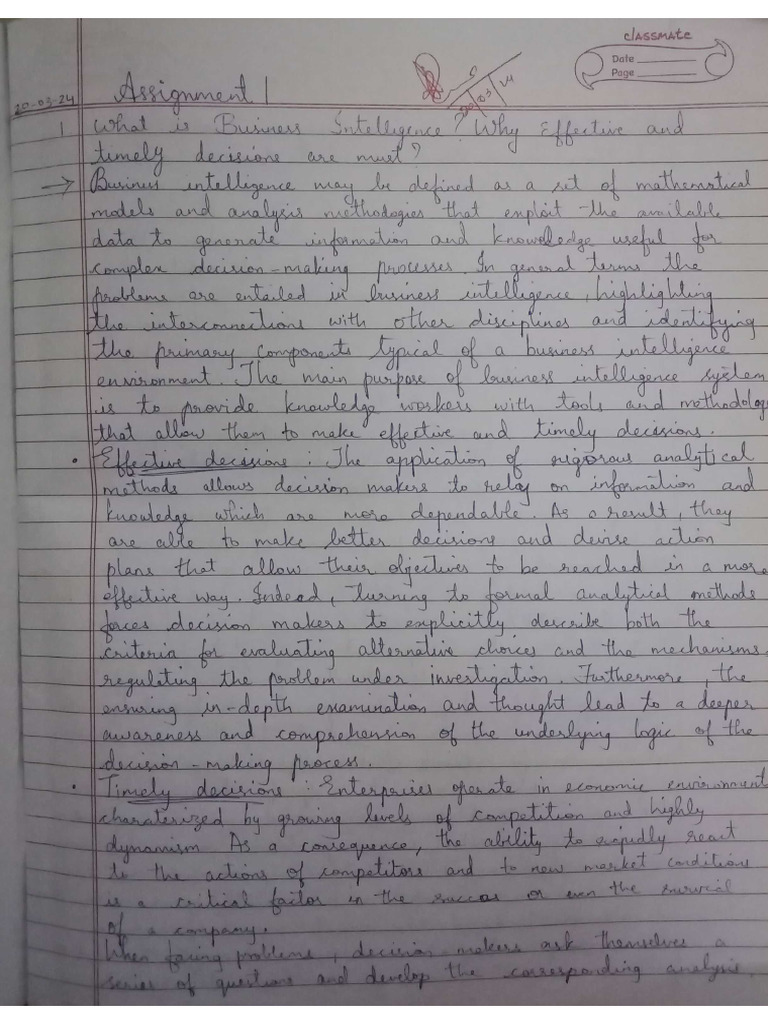 classmate
Date
Page
20-03-24
Assignment 1
20 03 24
1 What is Business Intelligence? Why Effective and
timely decisions are must?
→ Business intelligence may be defined as a set of mathematical
models and analysis methodogies that exploit the available
data to generate information and knowledge useful for
complex decision-making processes. In general terms the
problems are entailed in business intelligence, highlighting
the interconnections with other disciplines and identifying
the primary components typical of a business intelligence
environment. The main purpose of business intelligence system
is to provide knowledge workers with tools and methodology
that allow them to make effective and timely decisions.
• Effective decisions : The application of rigorous analytical
methods allows decision makers to relay on information and
knowledge which are more dependable. As a result, they
are able to make better decisions and devise action
plans that allow their objectives to be reached in a more
effective way. Indeed, turning to formal analytical methods
forces decision makers to explicitly describe both the
criteria for evaluating alternative choices and the mechanisms
regulating the problem under investigation. Furthermore, the
ensuring in-depth examination and thought lead to a deeper
awareness and comprehension of the underlying logic of the
decision-making process.
• Timely decisions : Enterprises operate in economic environment
charaterized by growing levels of competition and highly
dynamism As a consequence, the ability to rapidly react
to the actions of competitors and to new market conditions
is a critical factor in the success or even the survival
of a company.
When facing problems, decision makers ask themselves a
series of questions and develop the corresponding analysis.